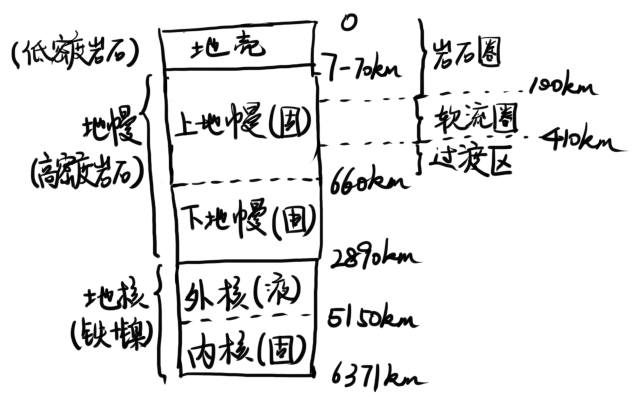 0
(低密度岩石) 地壳
7-70km 岩石圈
100km
地幔 上地幔(固) 软流圈
410km
(高密度岩石) 过渡区
660km
下地幔(固)
2890km
地核 外核(液)
(铁+镍) 5150km
内核(固)
6371km